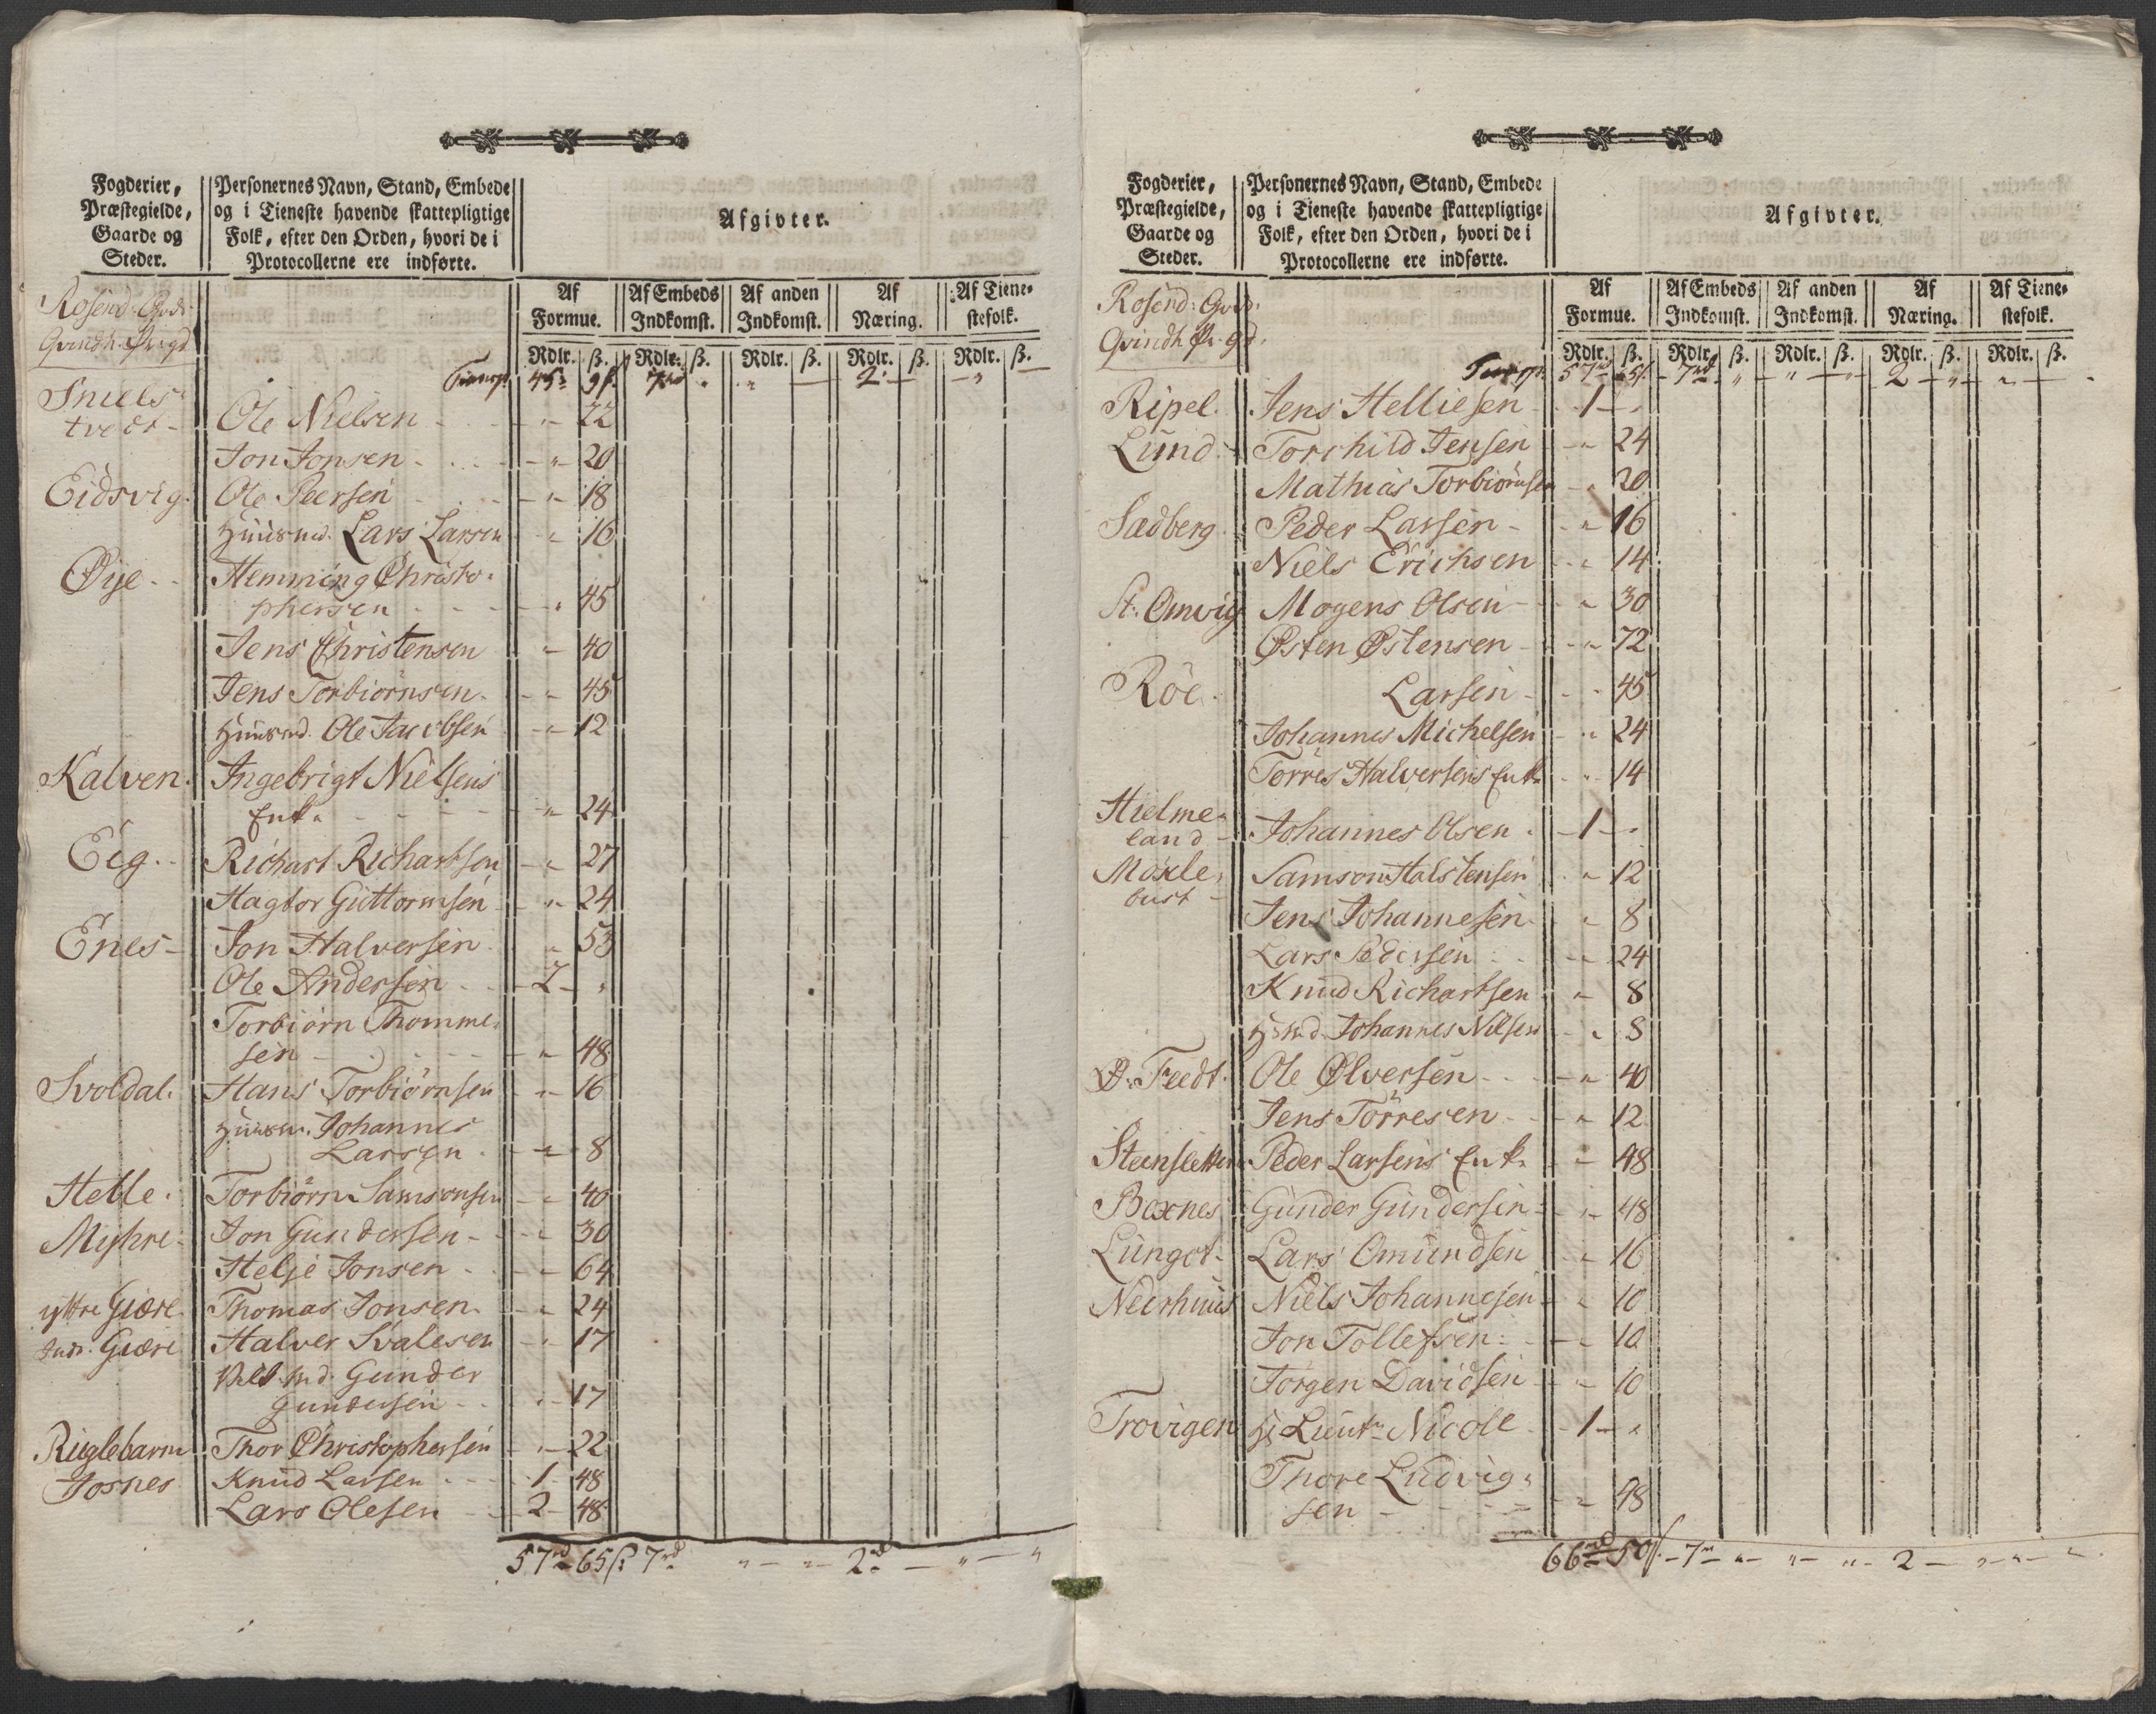 Fogderier, Præstegielde, Gaarde og Steder.
Personernes Navn, Stand, Embede og i Tieneste havende skattepligtige Folk, efter den Orden, hvori de i Protocollerne ere indførte.
Afgivter.
Af Formue. Af Embeds Indkomst. Af anden Indkomst. Af Næring. Af Tienestefolk.
Rdlr. ß. Rdlr. ß. Rdlr. ß. Rdlr. ß. Rdlr. ß.
Rosend: Gods
Qvindh: Pr: gd
45 9ß 7rd " " — 2 — — " —
Sniels
tvedt - Ole Nielsen - " - 22
Jon Jonsen - " - 20
Eidsvig. Ole Peersen - " - 18
Huusmd. Lars Larsen " 16
Øye - - Hemming Christo-
phersen - " 45
Jens Christensen - 40
Jens Torbiörnsen. - " 45
Huusmd. Ole Jacobsen - " 12
Kalven. Ingebrigt Nielsens
Enke - " - 24
Eig. - Richart Richartsen - " 27
Hagtor Guttormsen - " - 24
Enes - Jon Halversen " 53
Ole Andersen - 2 - "
Torbiorn Thomme-
sen - " - 48
Svoldal. Hans Torbiörnsen - " - 16
Huusm. Johannes
Larsen. - " - 8
Helle. Torbiörn Samsonsen - " 40
Myhre - Jon Gundersen - " 30
Helje Jonsen - - 64
yttre Giære. Thomas Jonsen. - " 24
Indr. Giære Halver Svalesen - " 17
md. Gunder
Gundersen - " - 17
Riglebarm Thor Christophersen - " - 22
Josnes Knud Larsen - 1 - 48
Lars Olesen - 2 - 48
57rd 65ß 7rd " - " - 2rd — " — "
Fogderier, Præstegielde, Gaarde og Steder.
Personernes Navn, Stand, Embede og i Tieneste havende skattepligtige Folk, efter den Orden, hvori de i Protocollerne ere indførte.
Afgivter.
Af Formue. Af Embeds Indkomst. Af anden Indkomst. Af Næring. Af Tienestefolk.
Rdlr. ß. Rdlr. ß. Rdlr. ß. Rdlr. ß. Rdlr. ß.
Rosend: Gods
Qvindh Pr: gd.
57rd 65ß - 7rd " - " - " - 2 - " - " -
Ripel. Jens Helliesen - 1 - "
Lund. Torchild Jensen - " 24
Mathias Torbiörnsen - " 20
Sædberg. Peder Larsen - " 16
Niels Erichsen - " 14
St: Omvig Mogens Olsen - " 30
Østen Østensen - " 72
Röe. Larsen - - 45
Johannes Michelsen - " 24
Torres Halversens Enke - " 14
Hielme-
land - Johannes Olsen. - 1 - "
Moxle-
bust - Samson Halstensen - " 12
Jens Johannesen. " 8
Lars Pedersen - " 24
Knud Richartsen " 8
Hsmd. Johannes Nilsen - " 8
Ø: Tvedt. Ole Ølversen - - " 40
Jens Törresen - " 12
Steensletten Peder Larsens Enke - 48
Boxnes Gunder Gundersen - " - 48
Lunget - Lars Omundsen - " 16
Neerhuus Niels Johannesen - " 10
Jon Tollefsen: - " 10
Jörgen Davidsen - " 10
Trovigen Hr Lieut: Nicoll - 1 - "
Thore Ludvig-
sen - - " 48
66rd 50ß. - 7rd - " - " - " - 2 - " - " - "